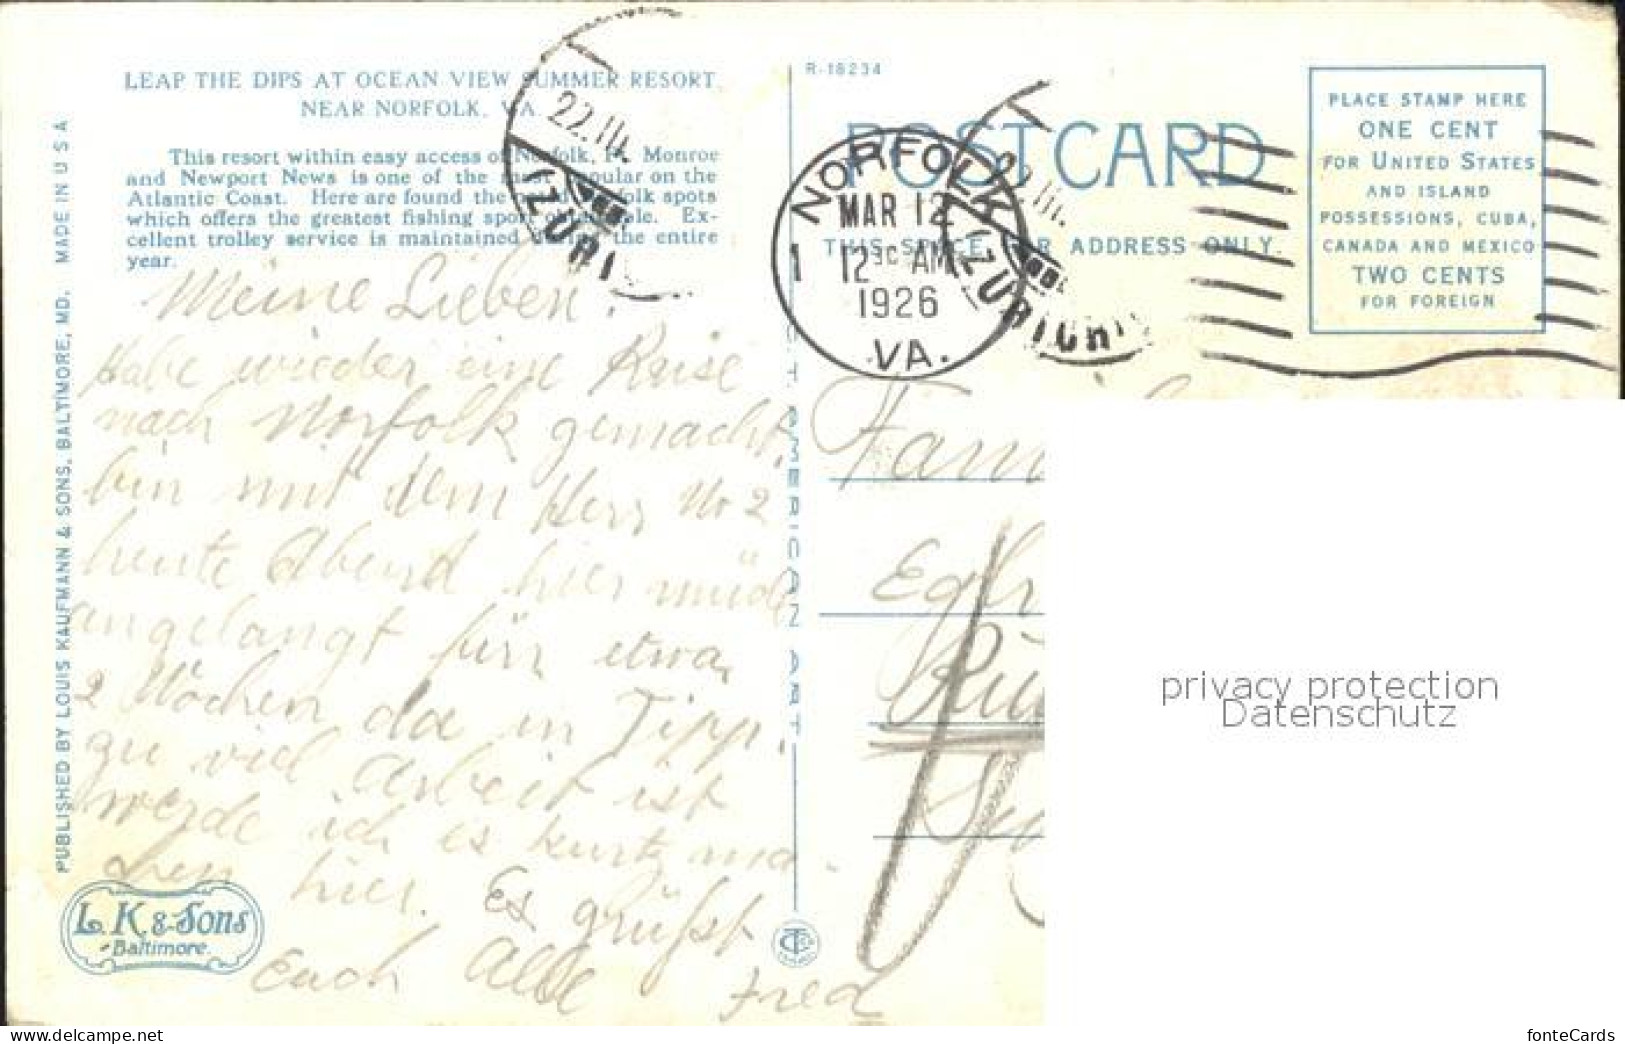 LEAP THE DIPS AT OCEAN VIEW SUMMER RESORT,
NEAR NORFOLK, VA.
This resort within easy access of Norfolk, Ft. Monroe
and Newport News is one of the most popular on the
Atlantic Coast. Here are found the Norfolk spots
which offers the greatest fishing sport obtainable. Ex-
cellent trolley service is maintained during the entire
year.
MADE IN U S A
PUBLISHED BY LOUIS KAUFMANN & SONS, BALTIMORE, MD.
Meine Lieben!
Habe wieder eine Reise
nach Norfolk gemacht,
bin mit dem Herr No 2
heute Abend hier müde
angelangt für etwa
2 Wochen da in Tipp.
zu viel Arbeit ist
werde ich es kurtz ma-
chen hier. Es grüsst
Euch alle Fred
L. K. & Sons
Baltimore.
22. III.
ZÜRI
R-18234
POSTCARD
THIS SPACE FOR ADDRESS ONLY.
NORFOLK
MAR 12
1 12 AM
1926
VA.
22 III.
ZÜRICH
PLACE STAMP HERE
ONE CENT
FOR UNITED STATES
AND ISLAND
POSSESSIONS, CUBA,
CANADA AND MEXICO
TWO CENTS
FOR FOREIGN
AMERICAN ART
Fam
Egl
Rü
privacy protection
Datenschutz
www.delcampe.net
fonteCards